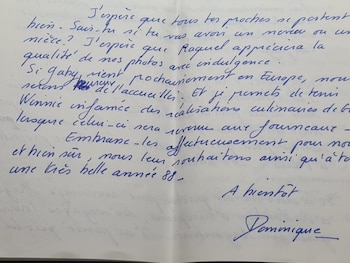 J'espère que tous tes proches se portent
bien. Sais-tu si tu vas avoir un neveu ou une
nièce? J'espère que Raquel appréciera la
qualité de nos photos avec indulgence.
Si Gaby vient prochainement en Europe, nous
serons heureux de l'accueillir. Et je promets de tenir
Winnie informée des réalisations culinaires de
lorsque celui-ci sera revenu aux fourneaux.
Embrasse-les affectueusement pour nous
et bien sûr, nous leur souhaitons ainsi qu'à toi
une très belle année 88.
A bientôt
Dominique